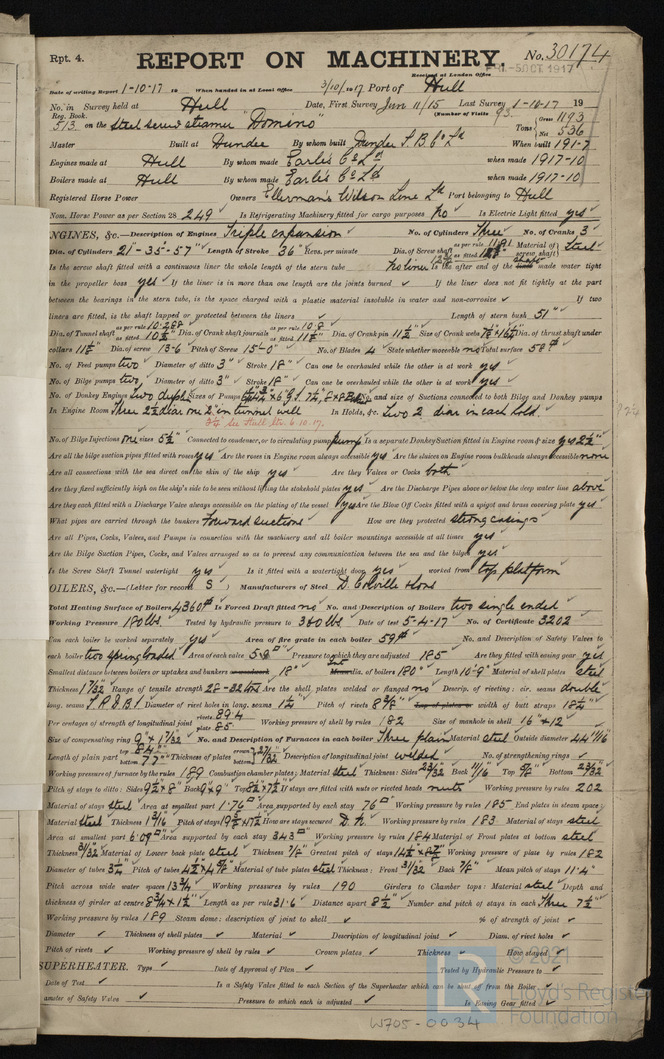 Rpt. 4. REPORT ON MACHINERY. No. 30174
Received at London Office 5 OCT 1917
Date of writing Report 1-10-17 19 When handed in at Local Office 3/10/1917 Port of Hull
No. in Survey held at Hull Date, First Survey Jun 11/15 Last Survey 1-10-17 19
Reg. Book. (Number of Visits 93.
513 on the steel screw steamer "Domino" Tons Gross 1193 Net 536
Master Built at Dundee By whom built Dundee S.B. Co Ld When built 1917
Engines made at Hull By whom made Earle's Co Ld when made 1917-10
Boilers made at Hull By whom made Earle's Co Ld when made 1917-10
Registered Horse Power Owners Ellerman's Wilson Line Ld Port belonging to Hull
Nom. Horse Power as per Section 28 249 Is Refrigerating Machinery fitted for cargo purposes no Is Electric Light fitted yes
NGINES, &c.—Description of Engines Triple expansion No. of Cylinders Three No. of Cranks 3
Dia. of Cylinders 21"-35"-57" Length of Stroke 36" Revs. per minute Dia. of Screw shaft as per rule as fitted Material of screw shaft) Steel
Is the screw shaft fitted with a continuous liner the whole length of the stern tube no liner Is the after end of the shaft made water tight
in the propeller boss yes If the liner is in more than one length are the joints burned If the liner does not fit tightly at the part
between the bearings in the stern tube, is the space charged with a plastic material insoluble in water and non-corrosive If two
liners are fitted, is the shaft lapped or protected between the liners Length of stern bush 51"
Dia. of Tunnel shaft as per rule 10.288 as fitted 10½" Dia. of Crank shaft journals as per rule 10.8 as fitted 11½" Dia. of Crank pin 11½" Size of Crank webs Dia. of thrust shaft under
collars 11½" Dia. of screw 13-6 Pitch of Screw 15-0" No. of Blades 4 State whether moveable no Total surface 58
No. of Feed pumps two Diameter of ditto 3" Stroke 18" Can one be overhauled while the other is at work yes
No. of Bilge pumps two Diameter of ditto 3" Stroke 18" Can one be overhauled while the other is at work yes
No. of Donkey Engines two duplx Sizes of Pumps No. and size of Suctions connected to both Bilge and Donkey pumps
In Engine Room Three 2½ diar one 2" in tunnel well In Holds, &c. Two 2 diar in each hold.
See Hull Ltr. 6.10.17.
No. of Bilge Injections one sizes 5½" Connected to condenser, or to circulating pump pump Is a separate Donkey Suction fitted in Engine room & size yes 2½"
Are all the bilge suction pipes fitted with roses yes Are the roses in Engine room always accessible yes Are the sluices on Engine room bulkheads always accessible none
Are all connections with the sea direct on the skin of the ship yes Are they Valves or Cocks both
Are they fixed sufficiently high on the ship's side to be seen without lifting the stokehold plates yes Are the Discharge Pipes above or below the deep water line above
Are they each fitted with a Discharge Valve always accessible on the plating of the vessel yes Are the Blow Off Cocks fitted with a spigot and brass covering plate yes
What pipes are carried through the bunkers Forward suctions How are they protected strong casings
Are all Pipes, Cocks, Valves, and Pumps in connection with the machinery and all boiler mountings accessible at all times yes
Are the Bilge Suction Pipes, Cocks, and Valves arranged so as to prevent any communication between the sea and the bilges yes
Is the Screw Shaft Tunnel watertight yes Is it fitted with a watertight door yes worked from top platform
OILERS, &c.—(Letter for record S ) Manufacturers of Steel D. Colville & Sons
Total Heating Surface of Boilers 4360 Is Forced Draft fitted no No. and Description of Boilers two single ended
Working Pressure 180 lbs. Tested by hydraulic pressure to 360 lbs Date of test 5-4-17 No. of Certificate 3202
Can each boiler be worked separately yes Area of fire grate in each boiler 59 No. and Description of Safety Valves to
each boiler two spring loaded Area of each valve Pressure to which they are adjusted 185 Are they fitted with easing gear yes
Smallest distance between boilers or uptakes and bunkers 18" dia. of boilers 180" Length 10-9" Material of shell plates steel
Thickness 1 7/32 Range of tensile strength 28-32 tons Are the shell plates welded or flanged no Descrip. of riveting: cir. seams double
long. seams T.R.D.B.S Diameter of rivet holes in long. seams 1¼ Pitch of rivets 8⅝ width of butt straps 18¼"
Per centages of strength of longitudinal joint rivets 89.4 plate 85 Working pressure of shell by rules 182 Size of manhole in shell 16"×12
Size of compensating ring 9"×1 7/32 No. and Description of Furnaces in each boiler Three plain Material steel Outside diameter 44 11/16
Length of plain part top bottom 77 Thickness of plates crown bottom Description of longitudinal joint welded No. of strengthening rings
Working pressure of furnace by the rules 189 Combustion chamber plates: Material steel Thickness: Sides 23/32 Back 11/16 Top 5/8" Bottom 23/32
Pitch of stays to ditto: Sides 9½"×8" Back 9"×9" Top 8½"×7½" If stays are fitted with nuts or riveted heads nuts Working pressure by rules 202
Material of stays steel Area at smallest part 1.76 Area supported by each stay 76 Working pressure by rules 185 End plates in steam space
Material steel Thickness 1 9/16 Pitch of stays 19¾×17½ How are stays secured D.N. Working pressure by rules 183 Material of stays steel
Area at smallest part 6.09 Area supported by each stay 343 Working pressure by rules 184 Material of Front plates at bottom steel
Thickness 31/32 Material of Lower back plate steel Thickness ⅞" Greatest pitch of stays Working pressure of plate by rules 182
Diameter of tubes 3¼ Pitch of tubes 4½×4⅝ Material of tube plates steel Thickness: Front 31/32 Back ⅞" Mean pitch of stays 11.4"
Pitch across wide water spaces 13¾ Working pressures by rules 190 Girders to Chamber tops: Material steel Depth and
thickness of girder at centre 8¾×1½" Length as per rule 31.6 Distance apart 8½" Number and pitch of stays in each Three 7½"
Working pressure by rules 189 Steam dome: description of joint to shell % of strength of joint
Diameter Thickness of shell plates Material Description of longitudinal joint Diam. of rivet holes
Pitch of rivets Working pressure of shell by rules Crown plates Thickness How stayed
SUPERHEATER. Type Date of Approval of Plan Tested by Hydraulic Pressure to
Date of Test Is a Safety Valve fitted to each Section of the Superheater which can be shut off from the Boiler
ameter of Safety Valve Pressure to which each is adjusted Is Easing Gear fitted
© 2021
Lloyd's Register
Foundation
W705-0034